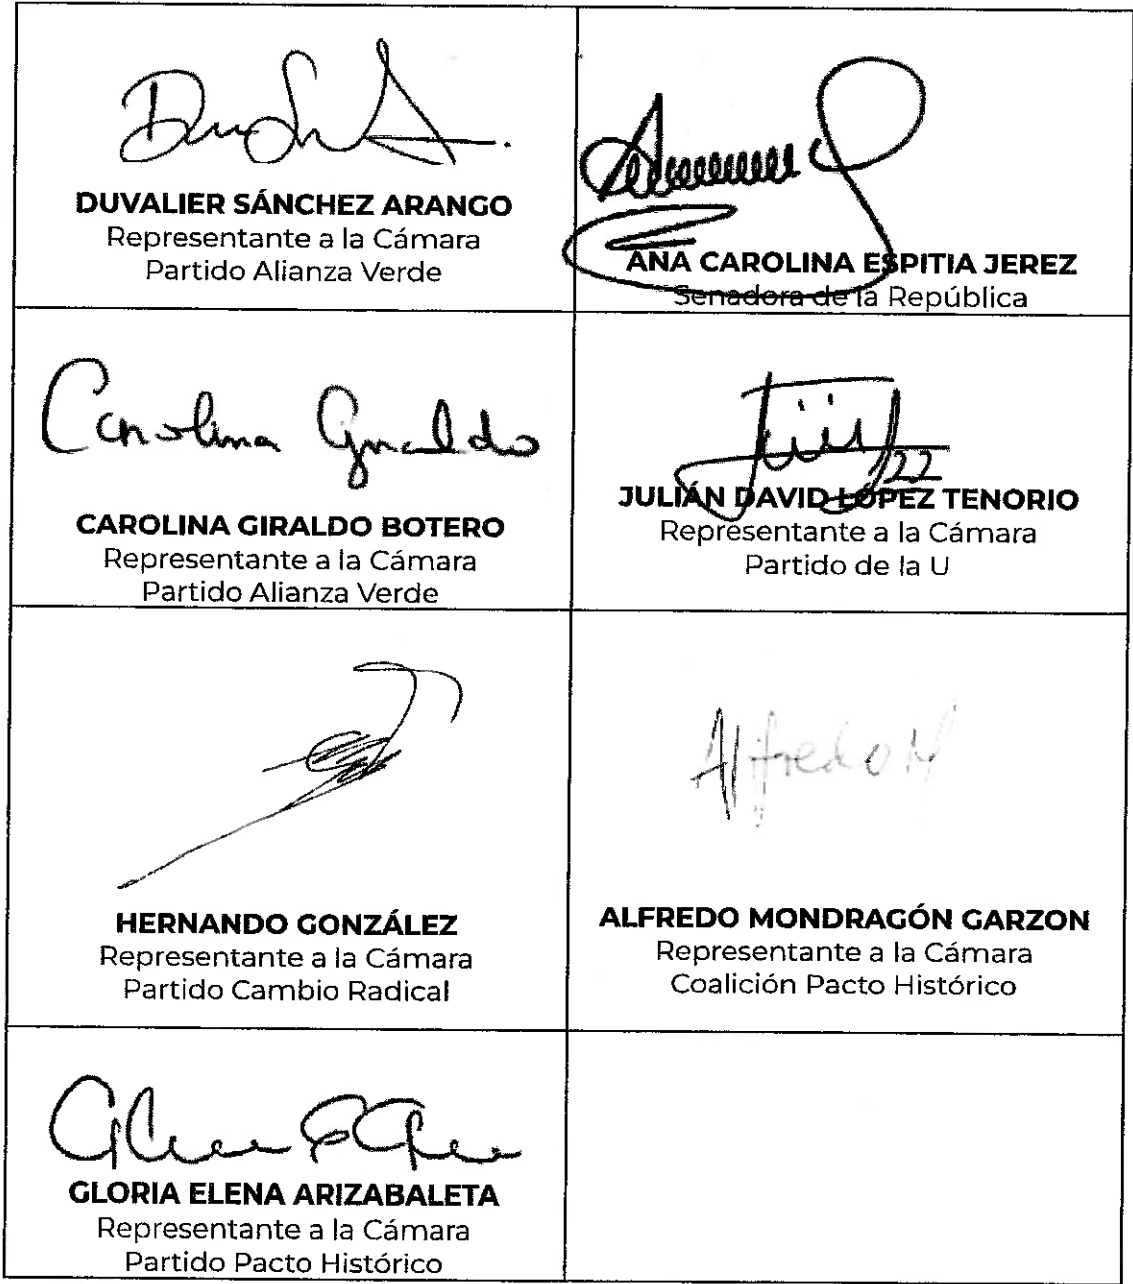 DUVALIER SÁNCHEZ ARANGO
Representante a la Cámara
Partido Alianza Verde
ANA CAROLINA ESPITIA JEREZ
Senadora de la República
Carolina Giraldo
CAROLINA GIRALDO BOTERO
Representante a la Cámara
Partido Alianza Verde
122
JULIÁN DAVID LÓPEZ TENORIO
Representante a la Cámara
Partido de la U
HERNANDO GONZÁLEZ
Representante a la Cámara
Partido Cambio Radical
Alfredo M
ALFREDO MONDRAGÓN GARZON
Representante a la Cámara
Coalición Pacto Histórico
GLORIA ELENA ARIZABALETA
Representante a la Cámara
Partido Pacto Histórico